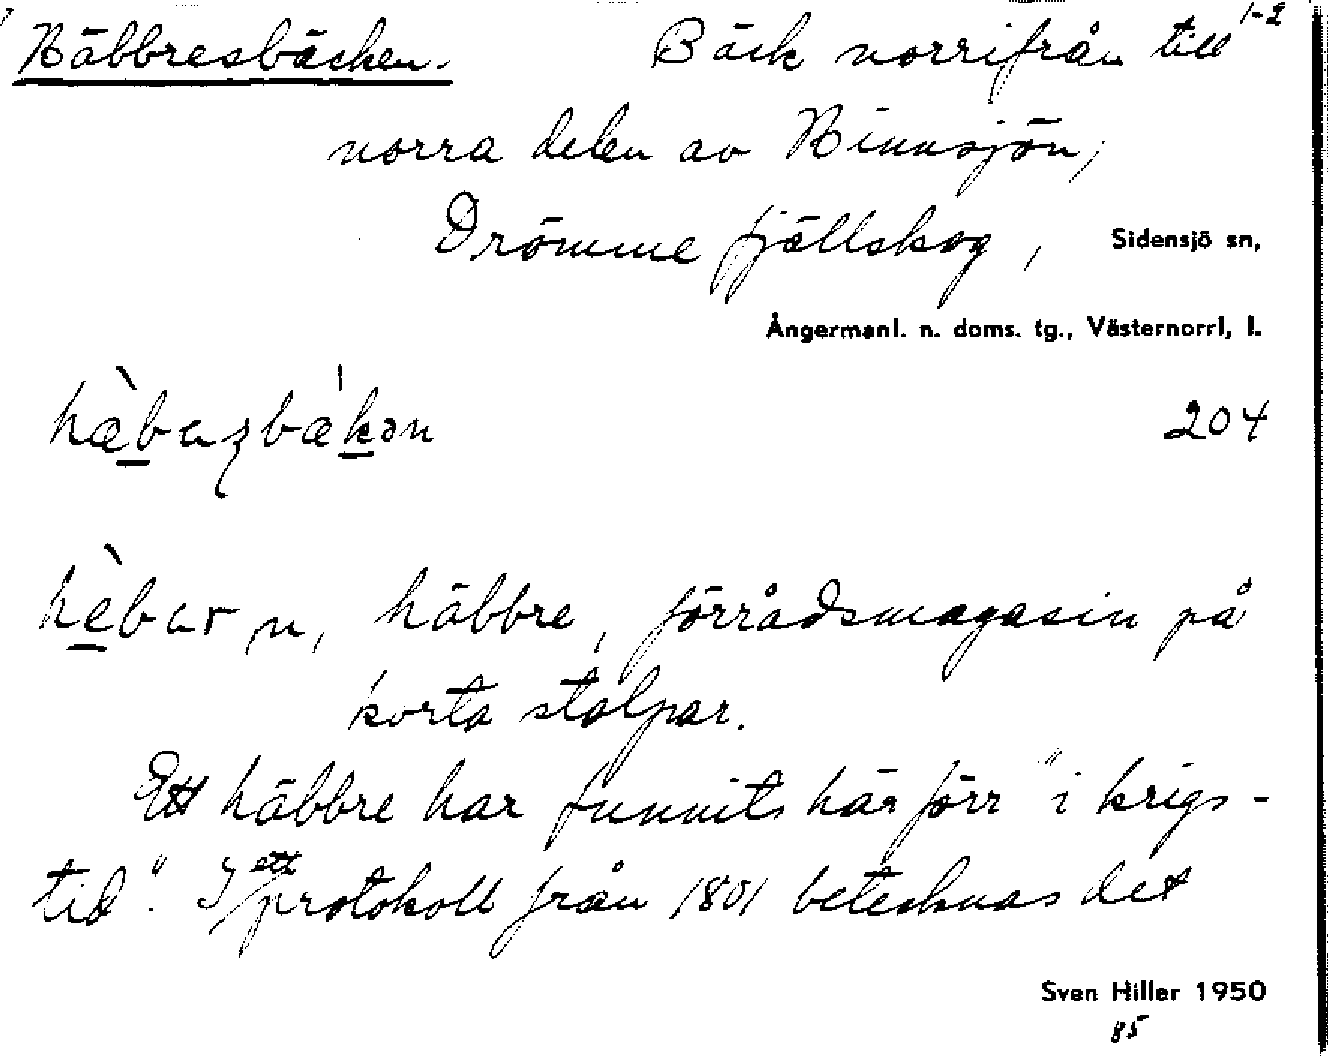 Häbbresbäcken. Bäck norrifrån till 1-2
norra delen av Hinnsjön,
Drömme fjällskog, Sidensjö sn,
Ångermanl. n. doms. tg., Västernorrl. l.
204
häbbre, förrådsmagasin på
korta stolpar.
Ett häbbre har funnits här förr "i krigs-
tid". I ett protokoll från 1801 betecknas det
Sven Hiller 1950
85